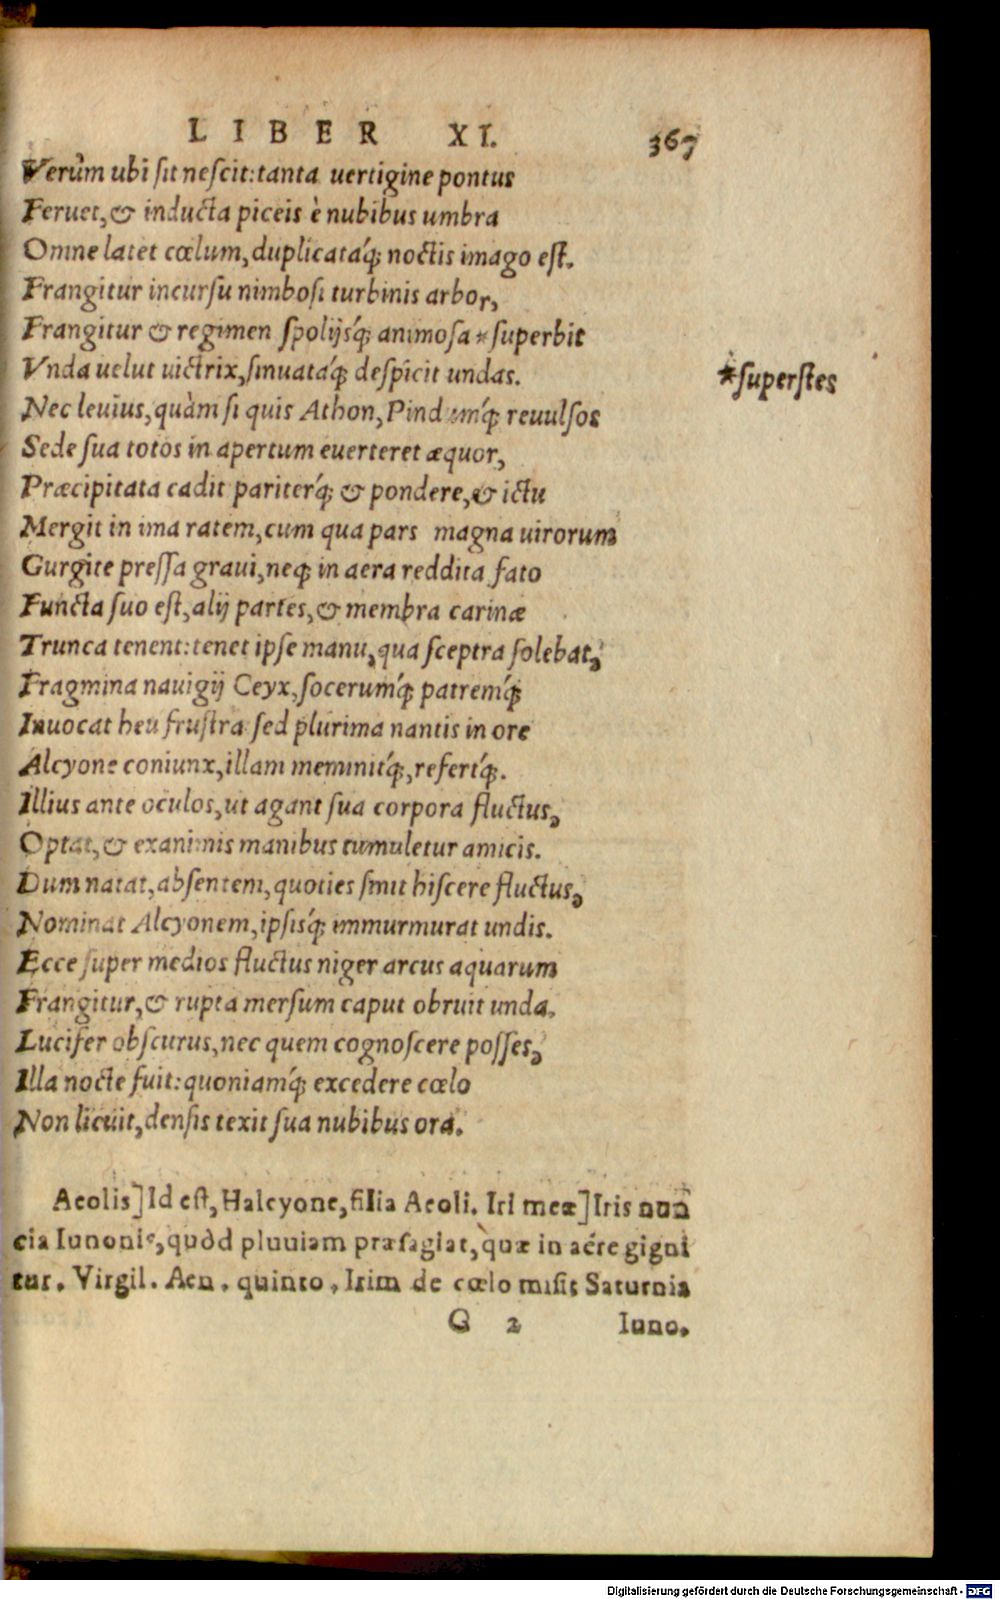 LIBER XI. 367
Verùm ubi sit nescit: tanta uertigine pontus
Feruet, & inducta piceis è nubibus umbra
Omne latet cœlum, duplicatáq; noctis imago est.
Frangitur incursu nimbosi turbinis arbor,
Frangitur & regimen spolijsq́; animosa *superbit
Vnda uelut uictrix, sinuatáq; despicit undas.
*superstes
Nec leuius, quàm si quis Athon, Pindumq́; reuulsos
Sede sua totos in apertum euerteret æquor,
Præcipitata cadit pariterq́; & pondere, & ictu
Mergit in ima ratem, cum qua pars magna uirorum
Gurgite pressa graui, neq; in aera reddita fato
Functa suo est, alij partes, & membra carinæ
Trunca tenent: tenet ipse manu, qua sceptra solebat,
Fragmina nauigij Ceyx, socerumq́; patremq́;
Inuocat heu frustra sed plurima nantis in ore
Alcyone coniunx, illam meminitq́;, refertq́;.
Illius ante oculos, ut agant sua corpora fluctus,
Optat, & exanimis manibus tumuletur amicis.
Dum natat, absentem, quoties sinit hiscere fluctus,
Nominat Alcyonem, ipsisq́; immurmurat undis.
Ecce super medios fluctus niger arcus aquarum
Frangitur, & rupta mersum caput obruit unda.
Lucifer obscurus, nec quem cognoscere posses,
Illa nocte fuit: quoniamq́; excedere cœlo
Non licuit, densis texit sua nubibus ora.
Aeolis] Id est, Halcyone, filia Aeoli. Iri meæ] Iris nun
cia Iunonis, quòd pluuiam præsagiat, quæ in aére gigni
tur. Virgil. Aen. quinto, Irim de cœlo misit Saturnia
G 2 Iuno.
Digitalisierung gefördert durch die Deutsche Forschungsgemeinschaft - DFG